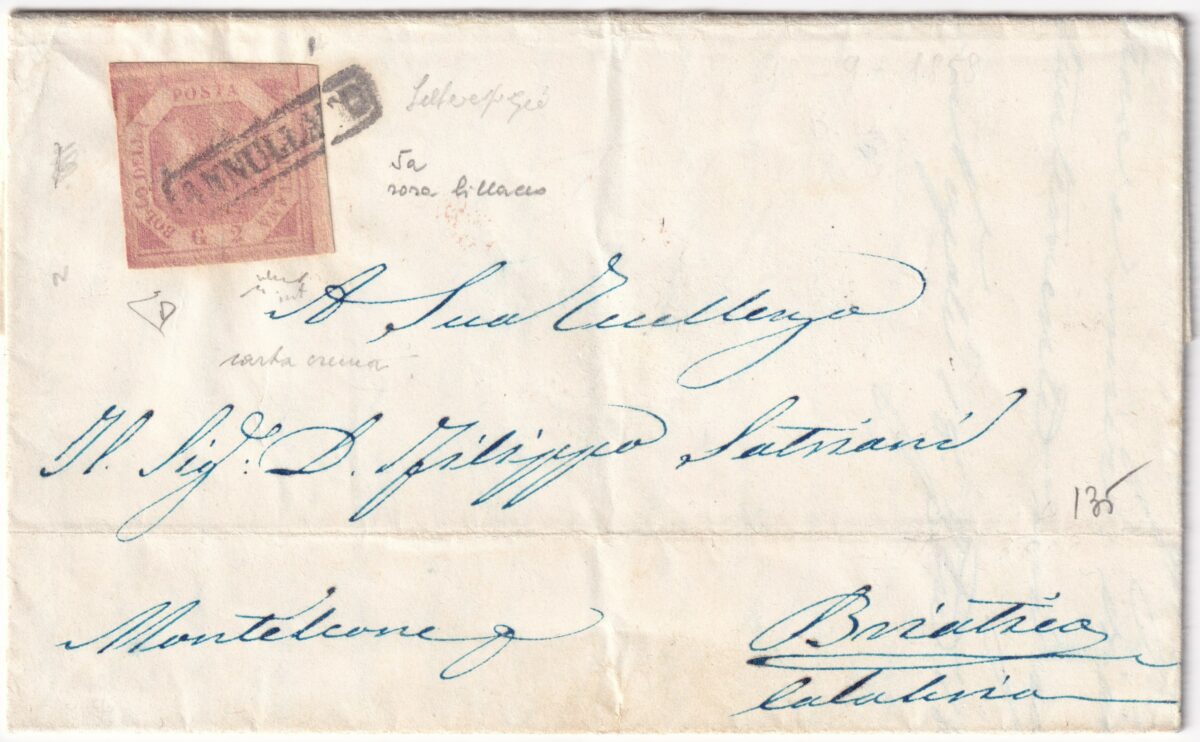 POSTA
BOLLO DELLA
G 2
ANNULLATO
9 - 1858
5a
rosa lillaceo
carta crema
A Sua Eccellenza
Il Sig.r D. Filippo Satriani
135
Monteleone
Briatico
Calabria